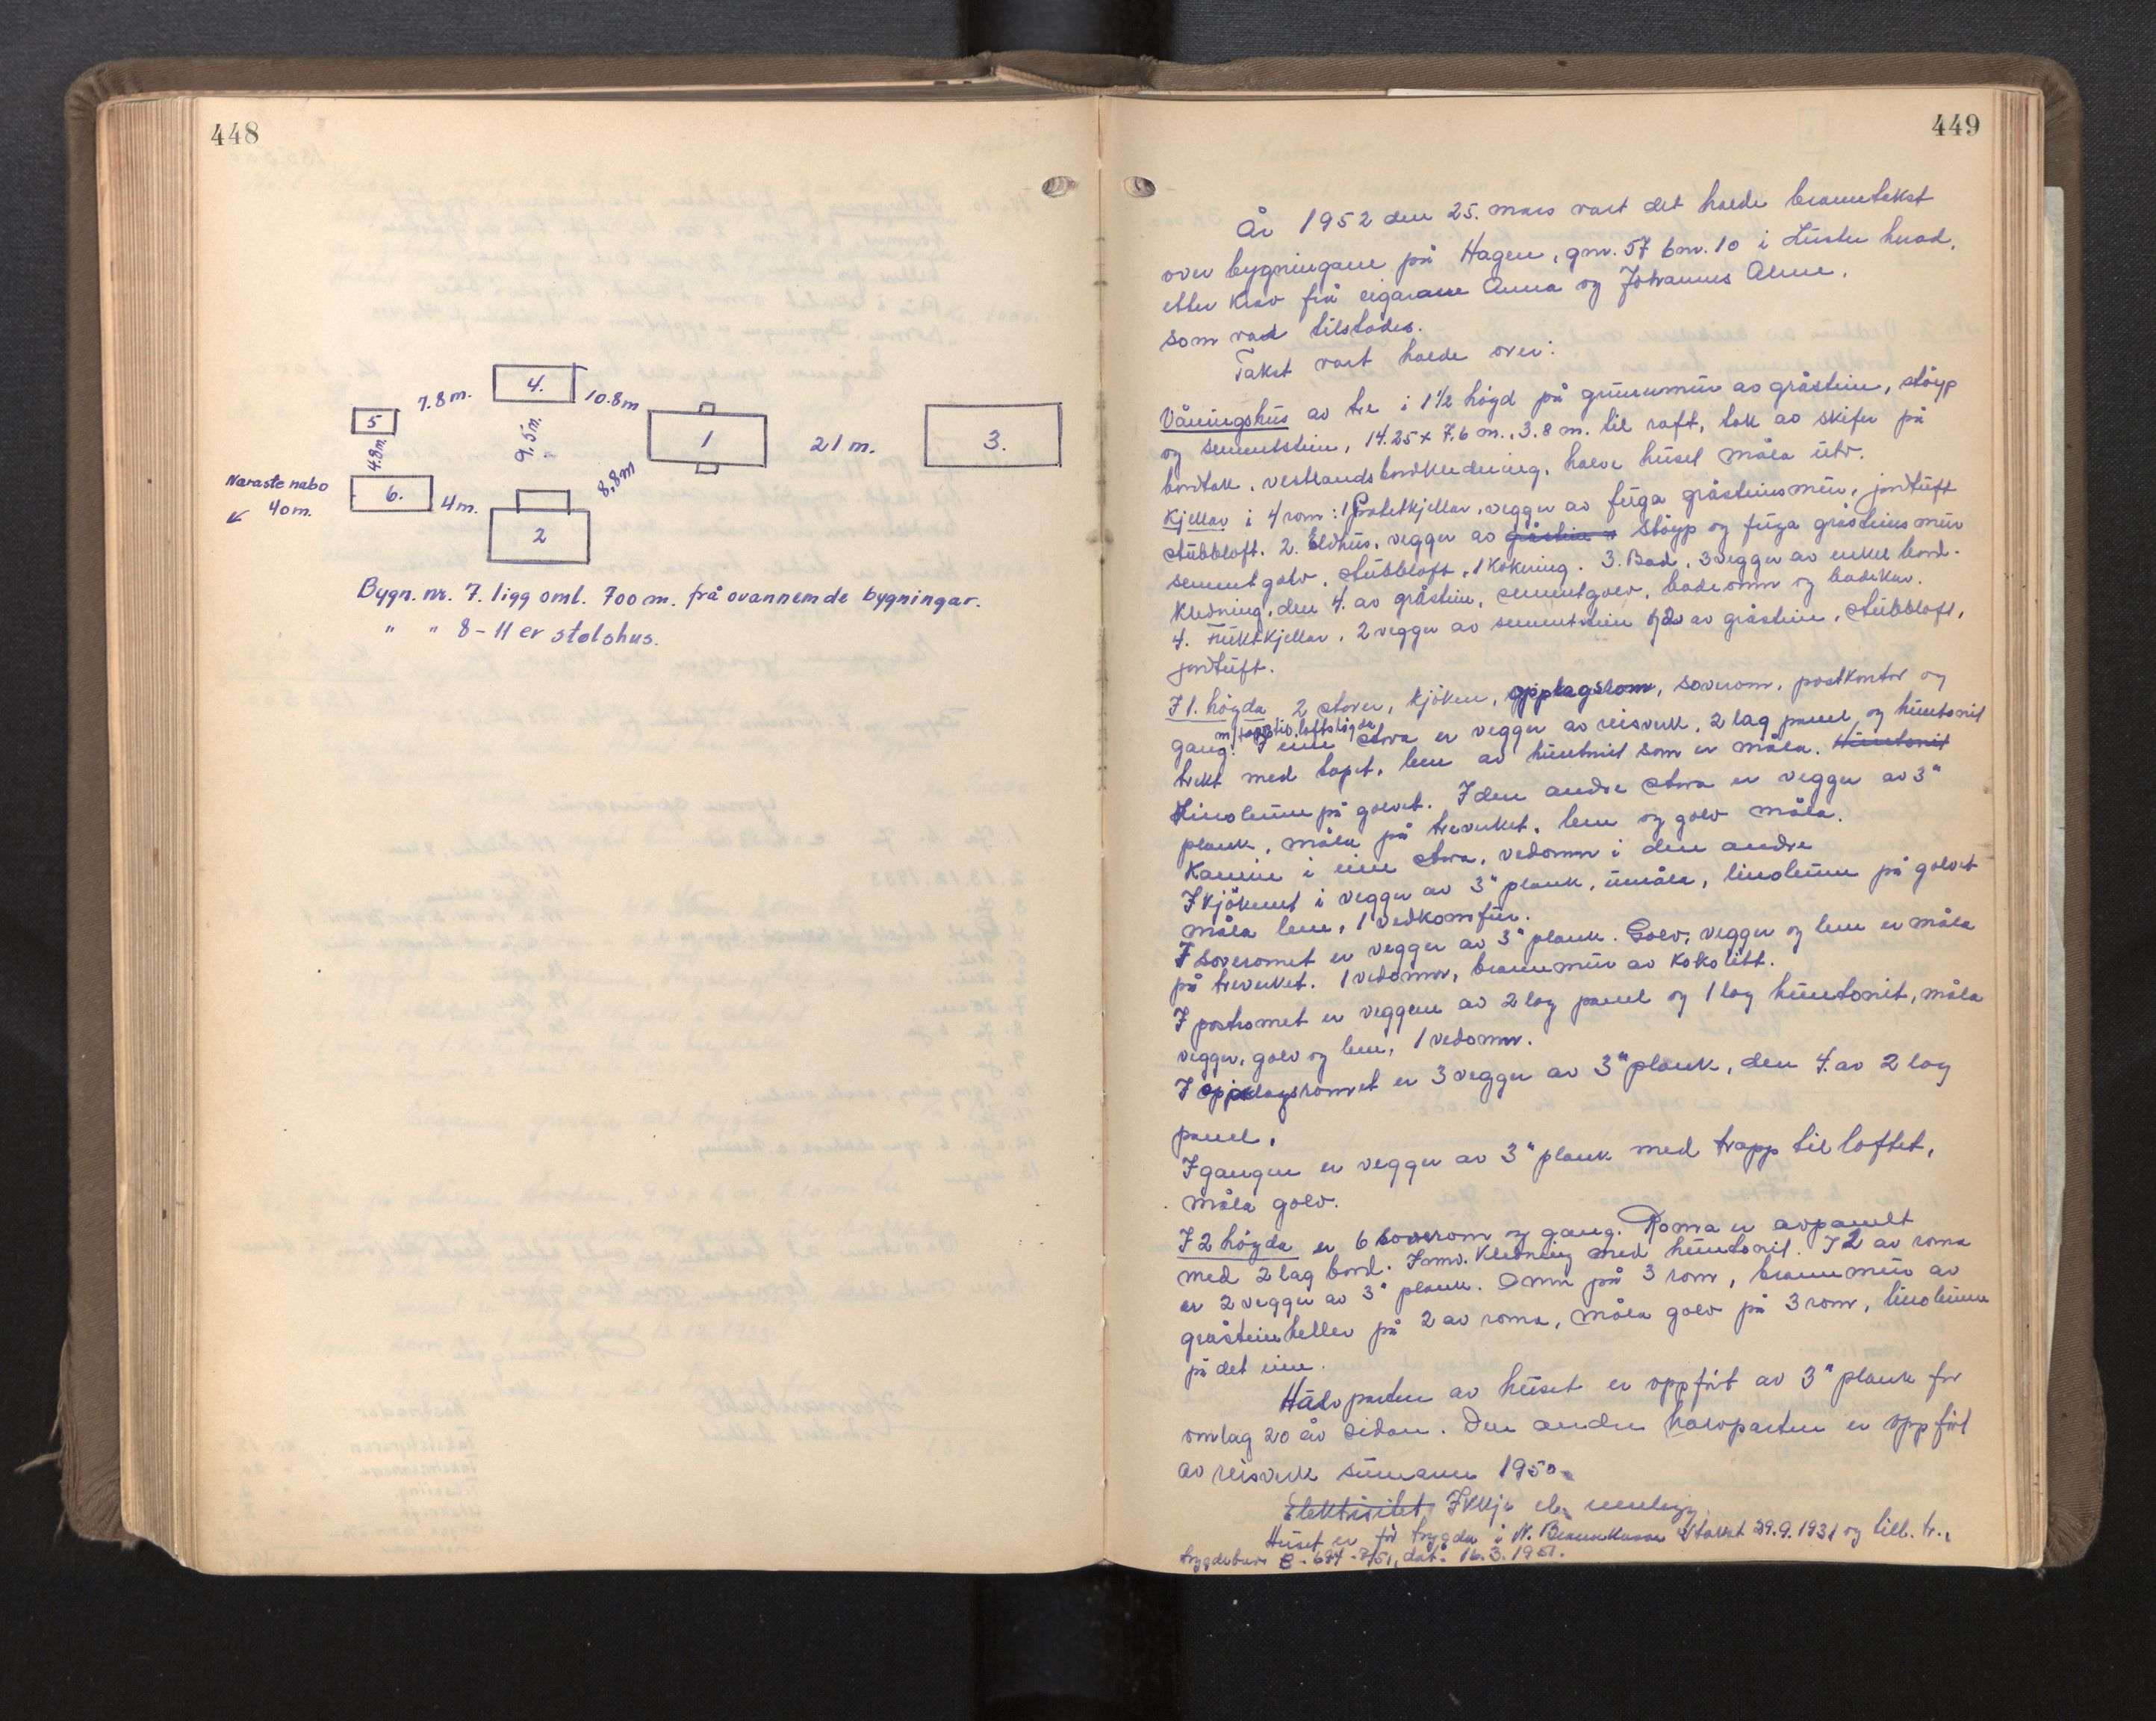 448
4.
7.8 m.
10.8 m
5
1
21 m.
3.
9.5 m.
4.8 m.
Næraste nabo
40 m.
6.
4 m.
8.8 m
2
Bygn. nr. 7. ligg oml. 700 m. frå ovannemde bygningar.
" " 8 - 11 er stølshus.
449
År 1952 den 25. mars vart det halde branntakst
over bygningane på Hagen, gnr. 57 bnr. 10 i Luster herad,
etter krav frå eigarane Anna og Johannes Alme,
som var tilstades.
Takst vart halde over:
Våningshus av tre i 1 1/2 høgd på grunnmur av gråstein, støyp
og sementstein, 14.25 x 7.6 m., 3.8 m. til raft, tak av skifer på
bordtak, vestlandsbordkledning, halve huset måla utv.
Kjellar i 4 rom: 1. Potetkjellar, vegger av fuga gråsteinsmur, jordtuft
stubbloft. 2. Eldhus, vegger av gråstein støyp og fuga gråsteinsmur
sementgolv, stubbloft, 1 kokering. 3. Bad, 3 vegger av enkel bord-
kledning, den 4. av gråstein, sementgolv, badeomn og badekar.
4. Fruktkjellar, 2 vegger av sementstein og 2 av gråstein, stubbloft,
jordtuft.
I 1. høgda 2 stover, kjøken, opplagsrom, soverom, postkontor og
gang. I eine stova er vegger av reisverk, 2 lag panel og huntonit
trekt med tapet, lem av huntonit som er måla. Huntonit
Linoleum på golvet. I den andre stova er vegger av 3"
plank, måla på treverket, lem og golv måla.
Kamin i eine stova, vedomn i den andre
I kjøkenet i vegger av 3" plank, umåla, linoleum på golvet
måla lem, 1 vedkomfur.
I soveromet er vegger av 3" plank. Golv, vegger og lem er måla
på treverket. 1 vedomn, brannmur av kokolitt.
I postromet er veggene av 2 lag panel og 1 lag huntonit, måla
vegger, golv og lem, 1 vedomn.
I opplagsromet er 3 vegger av 3" plank, den 4. av 2 lag
panel.
I gangen er vegger av 3" plank med trapp til loftet,
måla golv.
I 2 høgda er 6 soverom og gang. Roma er avpanelt
med 2 lag bord. Innv. kledning med huntonit. I 2 av roma
er 2 vegger av 3" plank. Omn på 3 rom, brannmur av
gråsteinheller på 2 av roma, måla golv på 3 rom, linoleum
på det eine.
Halvparten av huset er oppført av 3" plank for
omlag 20 år sidan. Den andre halvparten er oppført
av reisverk sumaren 1950.
Elektrisitet Ikkje el.
Huset er før trygda i N. Brannkasse takst 29.9.1931 og till. tr.,
trygdebrev 16.3.1951.